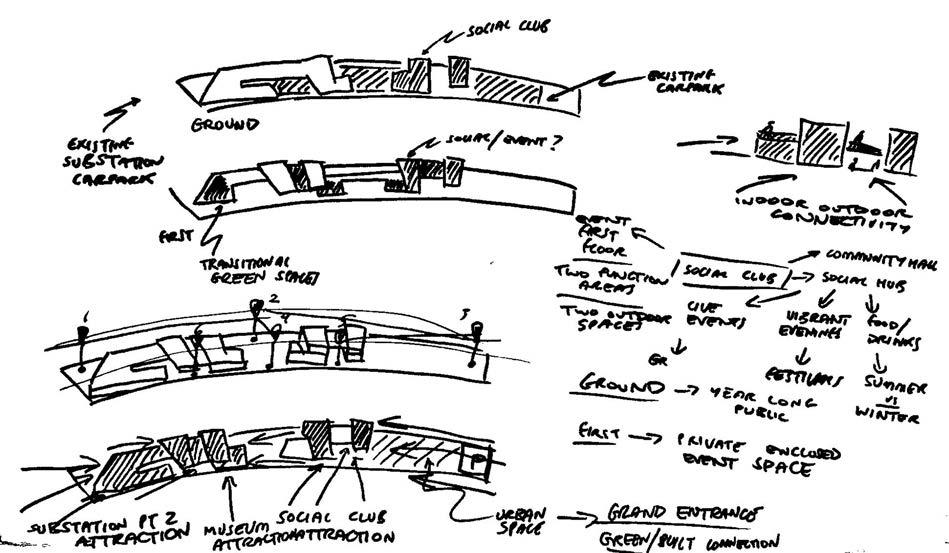 SOCIAL CLUB
EXISTING
CARPARK
GROUND
EXISTING
SUBSTATION
CARPARK
SOCIAL/EVENT?
FIRST
TRANSITIONAL
GREEN SPACES
INDOOR OUTDOOR
CONNECTIVITY
EVENT
FIRST
FLOOR
TWO FUNCTION
AREAS
TWO OUTDOOR
SPACES
SOCIAL CLUB
COMMUNITY HALL
SOCIAL HUB
LIVE
EVENTS
VIBRANT
EVENINGS
FOOD/
DRINKS
FESTIVALS
SUMMER
VS
WINTER
GR
GROUND → YEAR LONG
PUBLIC
FIRST → PRIVATE ENCLOSED
EVENT SPACE
1
2
3
4
5
P
SUBSTATION PT 2
ATTRACTION
MUSEUM
ATTRACTION
SOCIAL CLUB
ATTRACTION
URBAN
SPACE → GRAND ENTRANCE
GREEN/BUILT CONNECTION